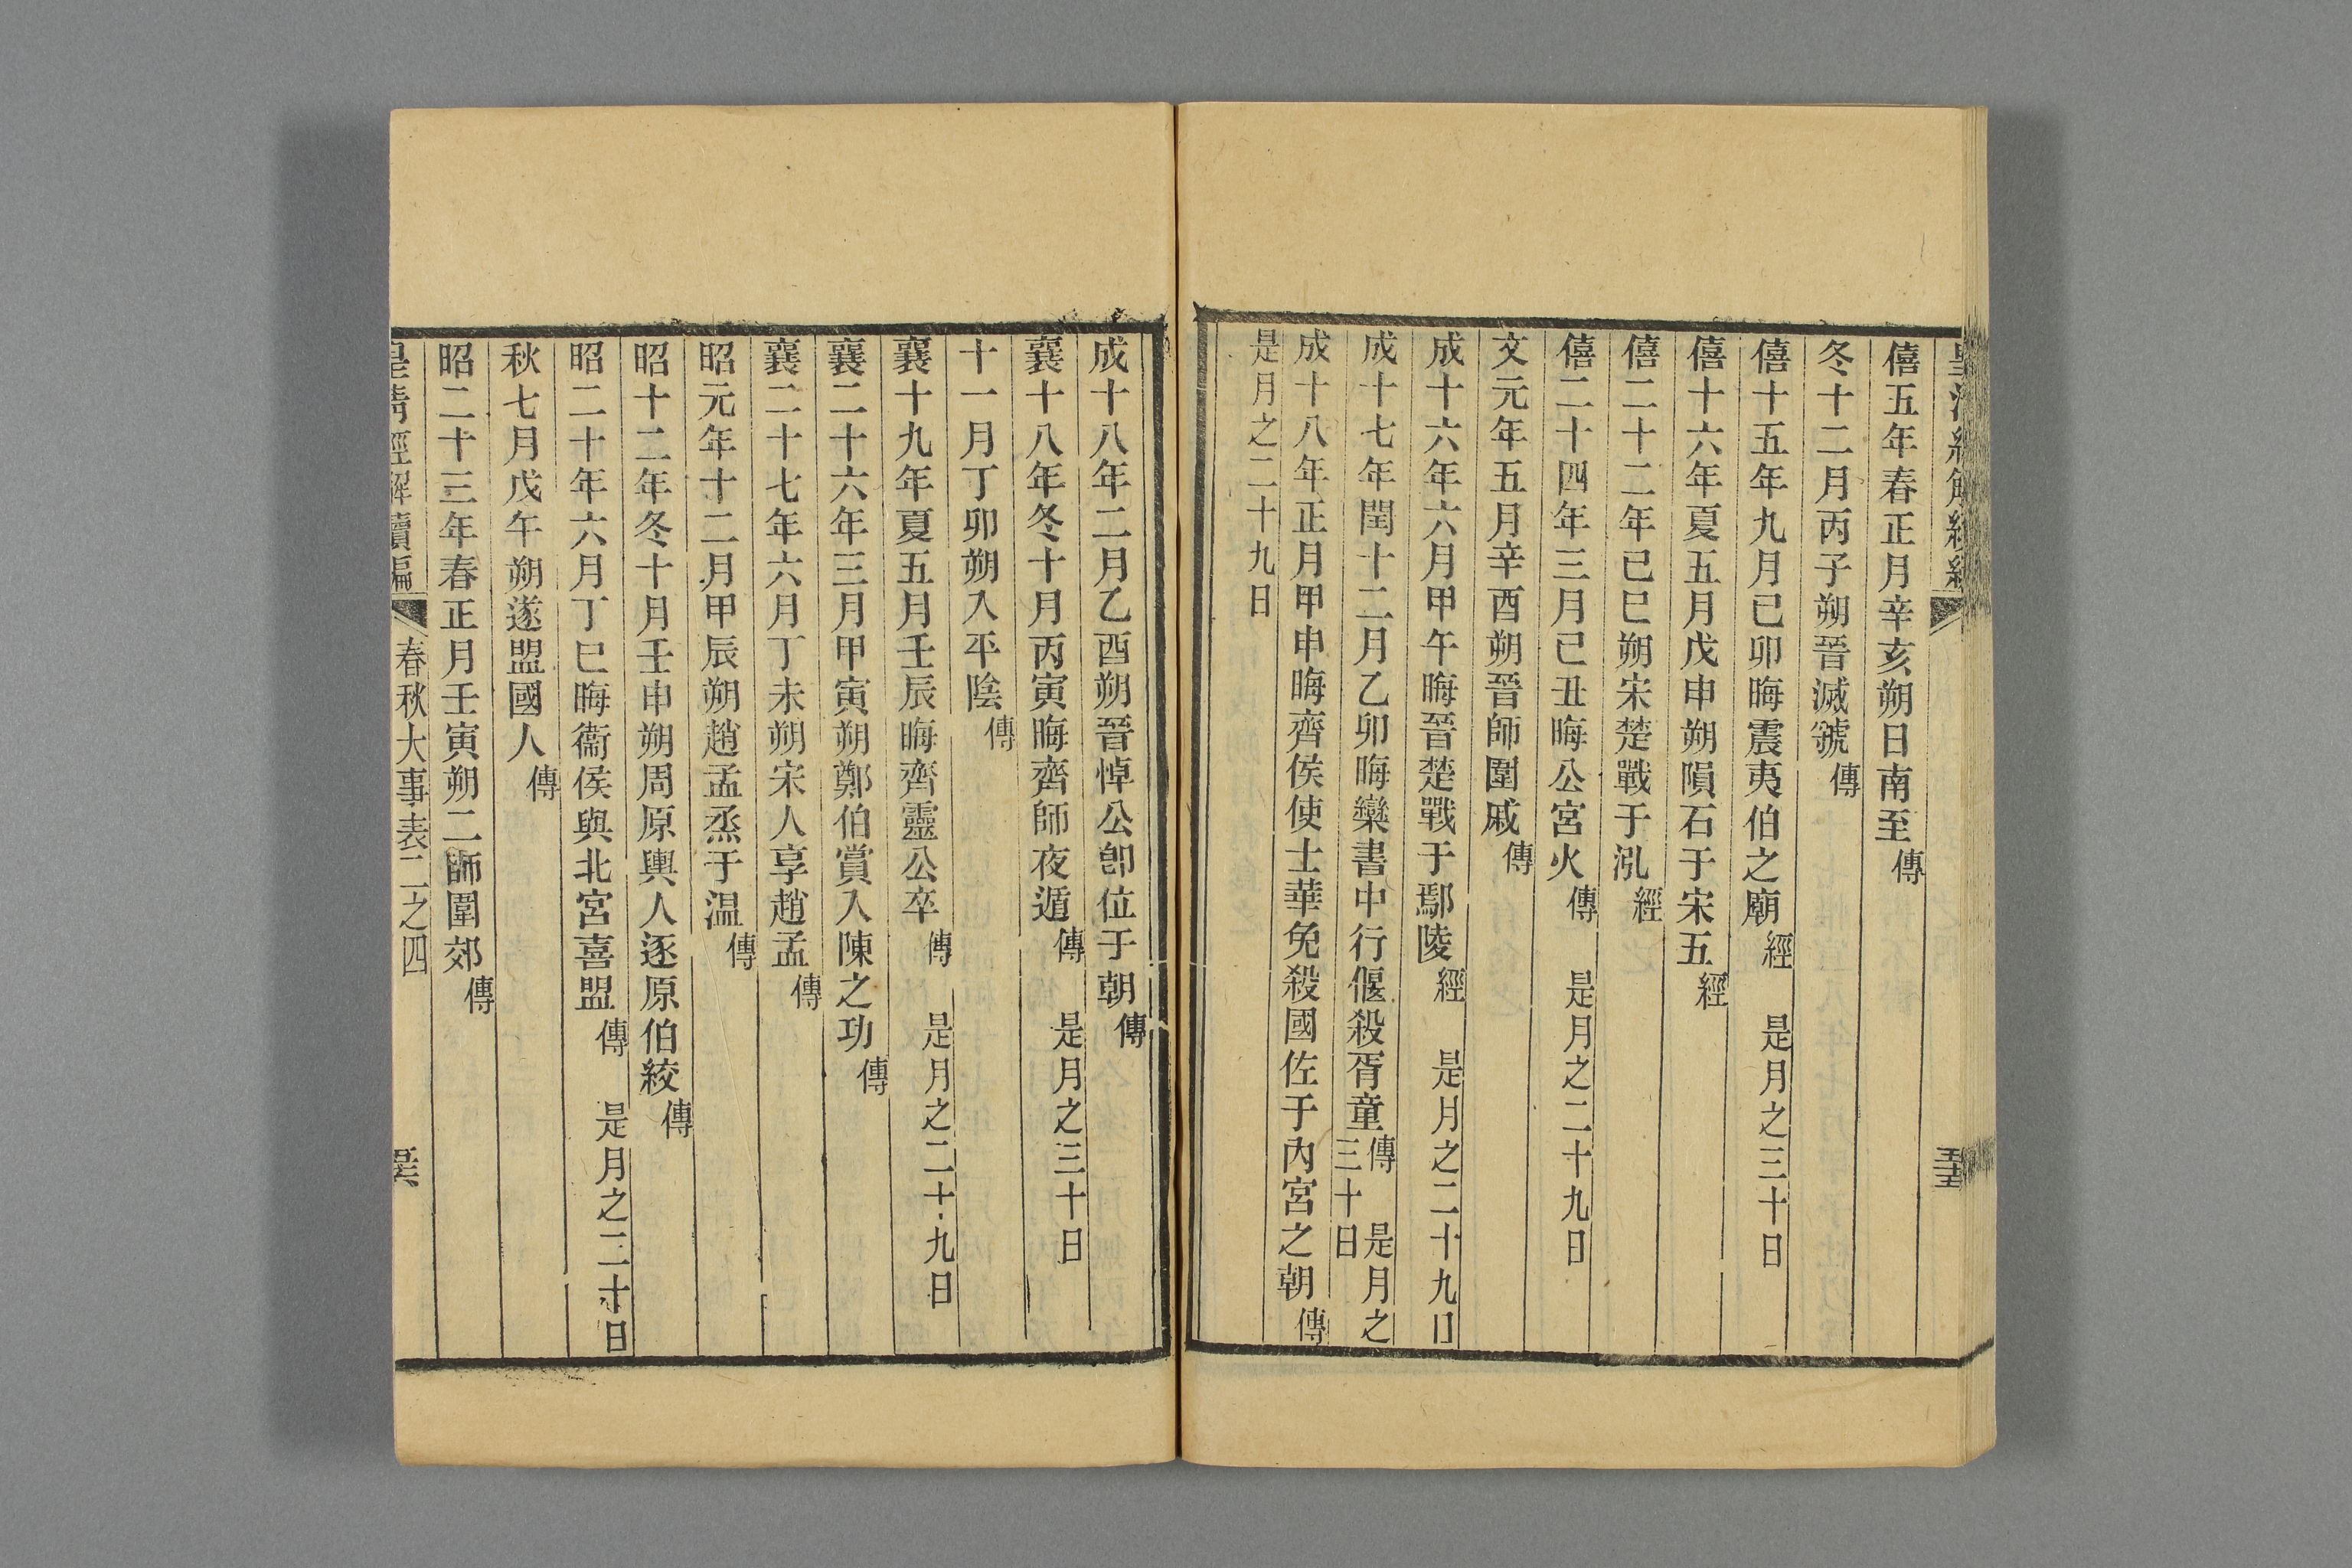 僖五年春正月辛亥朔日南至傳
冬十二月丙子朔晉滅虢傳
僖十五年九月己卯晦震夷伯之廟經 是月之三十日
僖十六年夏五月戊申朔隕石于宋五經
僖二十二年己巳朔宋楚戰于泓經
僖二十四年三月己丑晦公宮火傳 是月之二十九日
文元年五月辛酉朔晉師圍戚傳
成十六年六月甲午晦晉楚戰于鄢陵經 是月之二十九日
成十七年閏十二月乙卯晦欒書中行偃殺胥童傳 是月之三十日
成十八年正月甲申晦齊侯使士華免殺國佐于內宮之朝傳
是月之二十九日
成十八年二月乙酉朔晉悼公卽位于朝傳
襄十八年冬十月丙寅晦齊師夜遁傳 是月之三十日
十一月丁卯朔入平陰傳
襄十九年夏五月壬辰晦齊靈公卒傳 是月之二十九日
襄二十六年三月甲寅朔鄭伯賞入陳之功傳
襄二十七年六月丁未朔宋人享趙孟傳
昭元年十二月甲辰朔趙孟烝于温傳
昭十二年冬十月壬申朔周原輿人逐原伯絞傳
昭二十年六月丁巳晦衞侯與北宮喜盟傳 是月之二十日
秋七月戊午朔遂盟國人傳
昭二十三年春正月壬寅朔二師圍郊傳
皇清經解續編 春秋大事表二之四